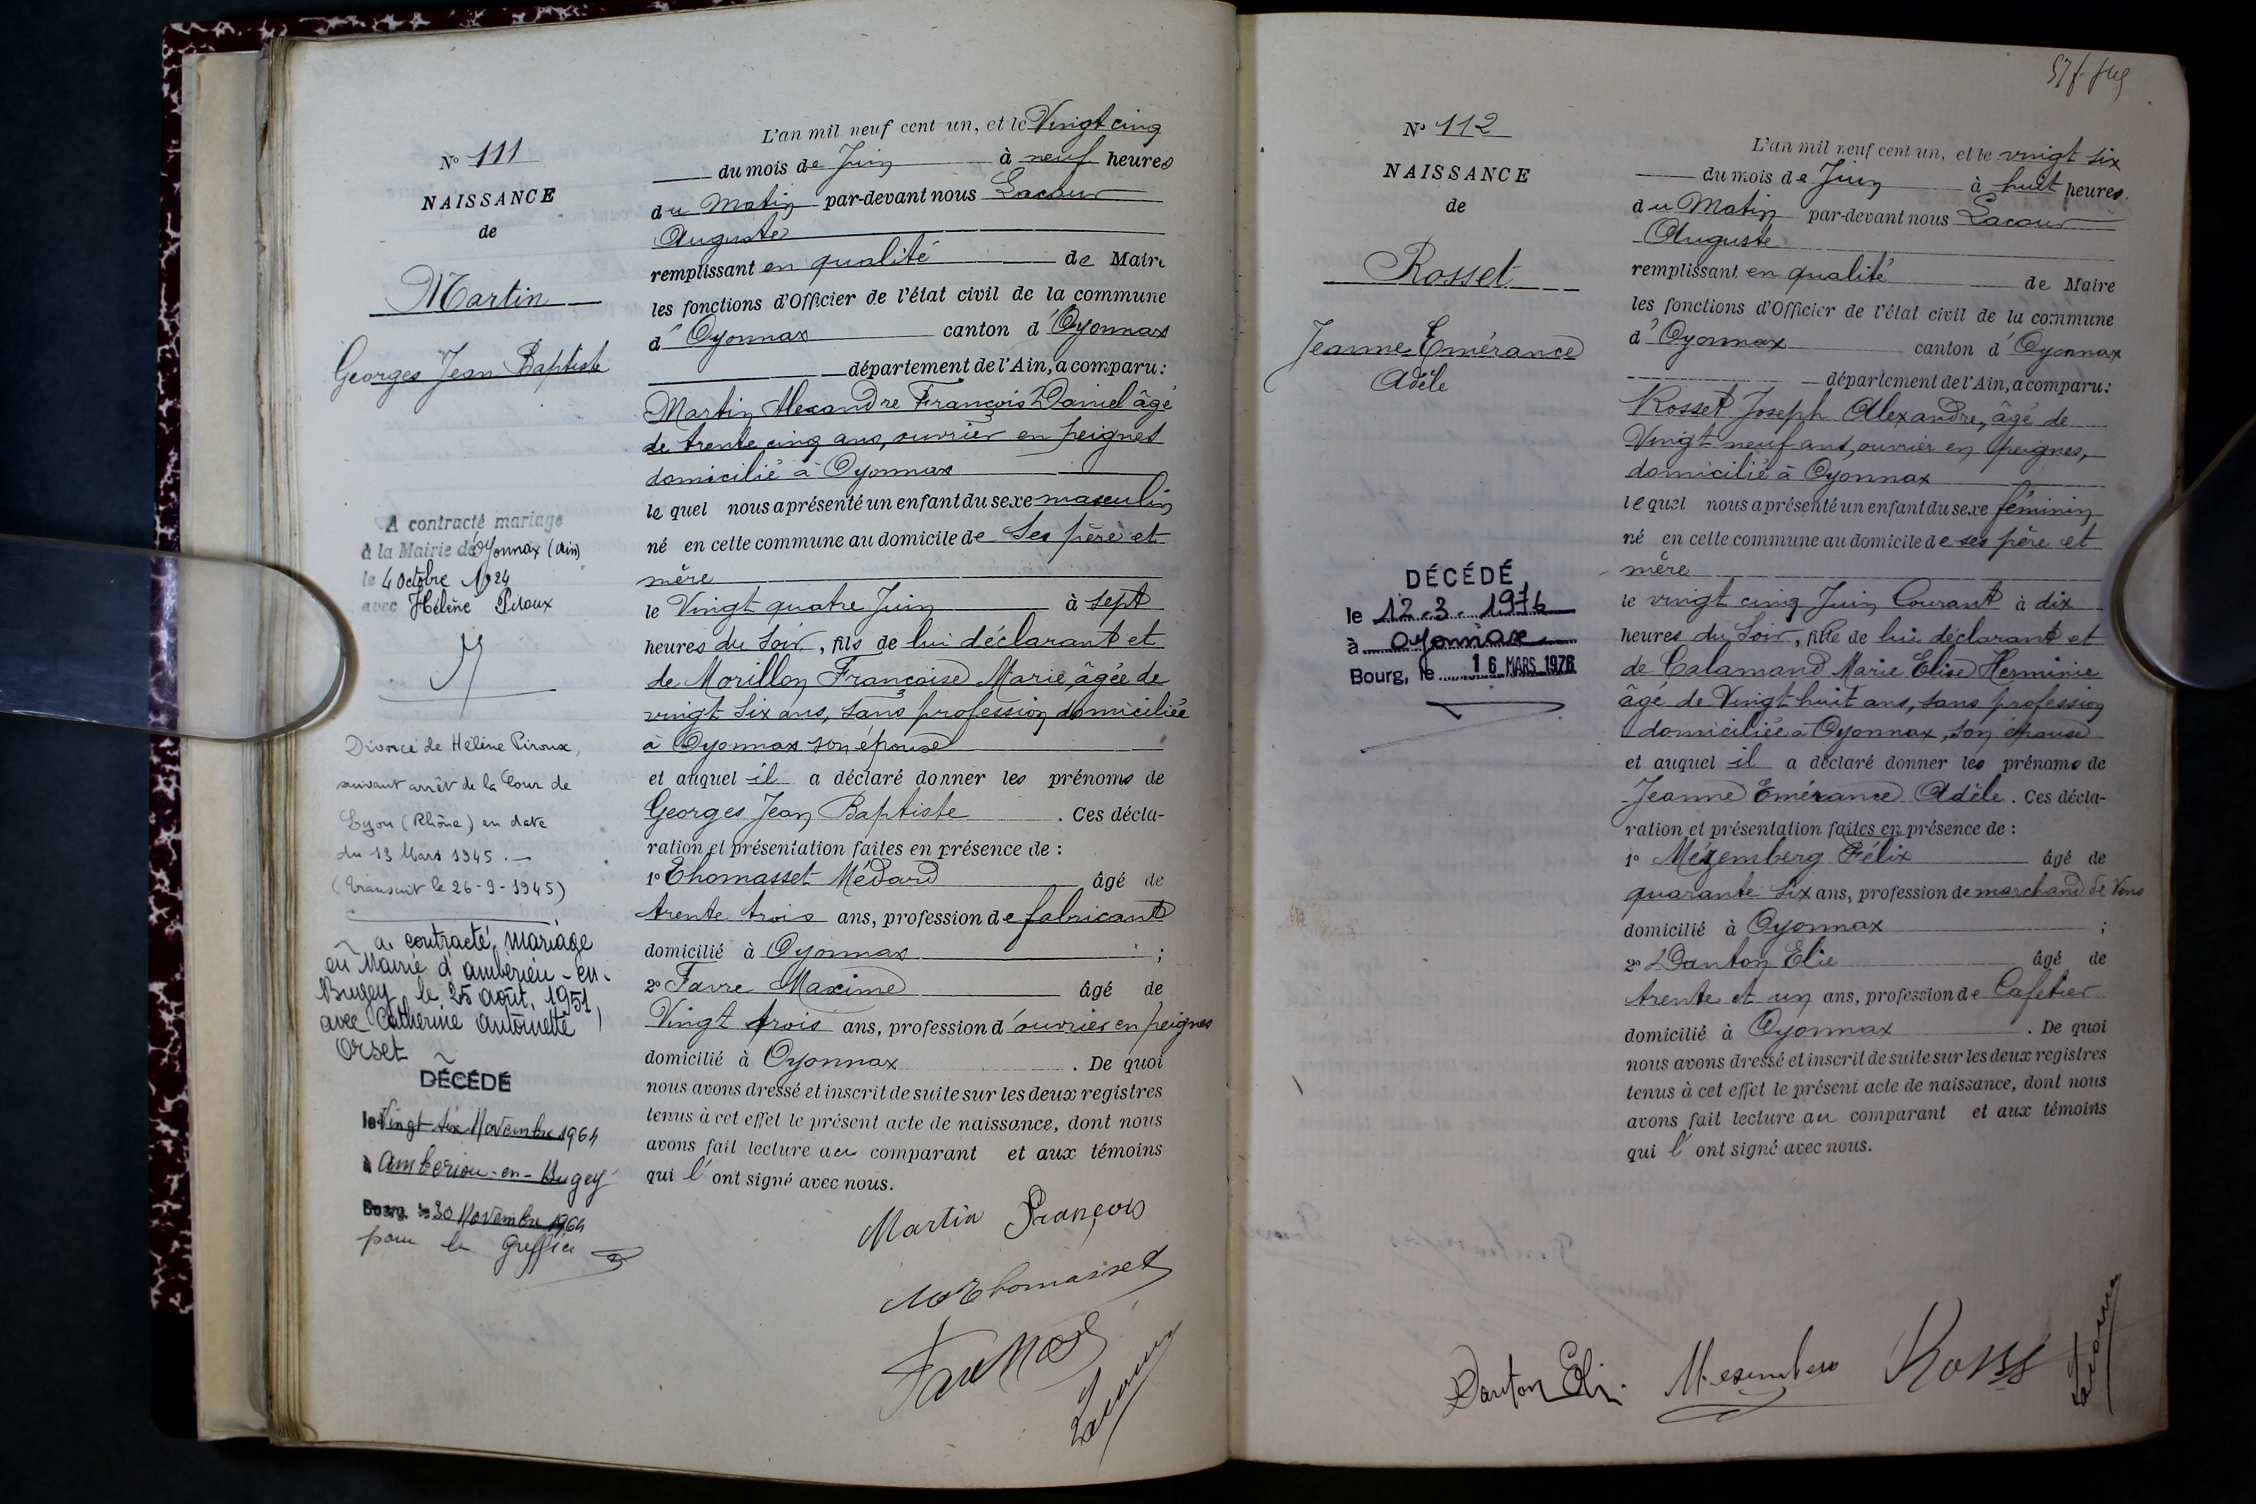 N° 111
NAISSANCE
de
Martin
Georges Jean Baptiste
A contracté mariage
à la Mairie de Oyonnax (Ain)
le 4 Octobre 1924
avec Hélène Piroux
Divorcé de Hélène Piroux,
suivant arrêt de la Cour de
Lyon (Rhône) en date
du 13 Mars 1945.—
(transcrit le 26-9-1945)
a contracté mariage
en Mairie d'ambérieu-en-
Bugey le 25 août 1951
avec Catherine antoinette
Orset
DÉCÉDÉ
le Vingt six Novembre 1964
à amberieu-en-Bugey
Bourg, le 30 Novembre 1964
pour le Greffier
L'an mil neuf cent un, et le Vingt cinq
du mois de Juin à neuf heures
du Matin par-devant nous Lacour
Auguste
remplissant en qualité de Maire
les fonctions d'Officier de l'état civil de la commune
d' Oyonnax canton d' Oyonnax
département de l'Ain, a comparu:
Martin Alexandre François Daniel âgé
de trente cinq ans, ouvrier en peignes
domicilié à Oyonnax
le quel nous a présenté un enfant du sexe masculin
né en cette commune au domicile de Ses père et
mère
le Vingt quatre Juin à sept
heures du Soir, fils de lui déclarant et
de Morillon Françoise Marie, âgée de
vingt Six ans, sans profession domiciliée
à Oyonnax son épouse
et auquel il a déclaré donner les prénoms de
Georges Jean Baptiste. Ces décla-
ration et présentation faites en présence de :
1° Thomasset Médard âgé de
trente trois ans, profession de fabricant
domicilié à Oyonnax ;
2° Favre Maxime âgé de
Vingt trois ans, profession d'ouvrier en peignes
domicilié à Oyonnax. De quoi
nous avons dressé et inscrit de suite sur les deux registres
tenus à cet effet le présent acte de naissance, dont nous
avons fait lecture au comparant et aux témoins
qui l' ont signé avec nous.
Martin François
Thomasset
Lacour
N° 112
NAISSANCE
de
Rosset
Jeanne Emérance
Adèle
DÉCÉDÉ
le 12-3-1976
à oyonnax
Bourg, le 16 MARS 1976
L'an mil neuf cent un, et le vingt six
du mois de Juin à huit heures
du Matin par-devant nous Lacour
Auguste
remplissant en qualité de Maire
les fonctions d'Officier de l'état civil de la commune
d' Oyonnax canton d' Oyonnax
département de l'Ain, a comparu:
Rosset Joseph Alexandre, âgé de
Vingt neuf ans, ouvrier en peignes,
domicilié à Oyonnax
le quel nous a présenté un enfant du sexe féminin
né en cette commune au domicile de ses père et
mère
le vingt cinq Juin Courant à dix
heures du Soir, fille de lui déclarant et
de Calamand Marie Elise Herminie
âgé de Vingt huit ans, sans profession
domiciliée à Oyonnax, son épouse
et auquel il a déclaré donner les prénoms de
Jeanne Emérance Adèle. Ces décla-
ration et présentation faites en présence de :
1° Mézemberg Félix âgé de
quarante Six ans, profession de marchand de Vins
domicilié à Oyonnax ;
2° Danton Elie âgé de
trente et un ans, profession de Cafetier
domicilié à Oyonnax. De quoi
nous avons dressé et inscrit de suite sur les deux registres
tenus à cet effet le présent acte de naissance, dont nous
avons fait lecture au comparant et aux témoins
qui l' ont signé avec nous.
Danton Eli
Lacour